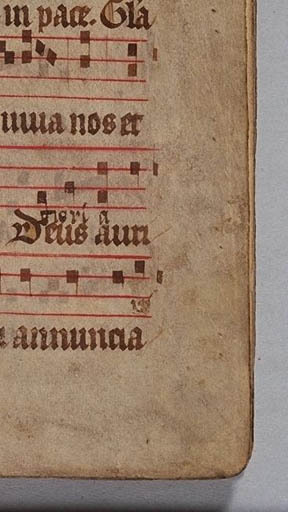 in pace. Gla
uiuia nos et
gori a
Deus auri
annuncia